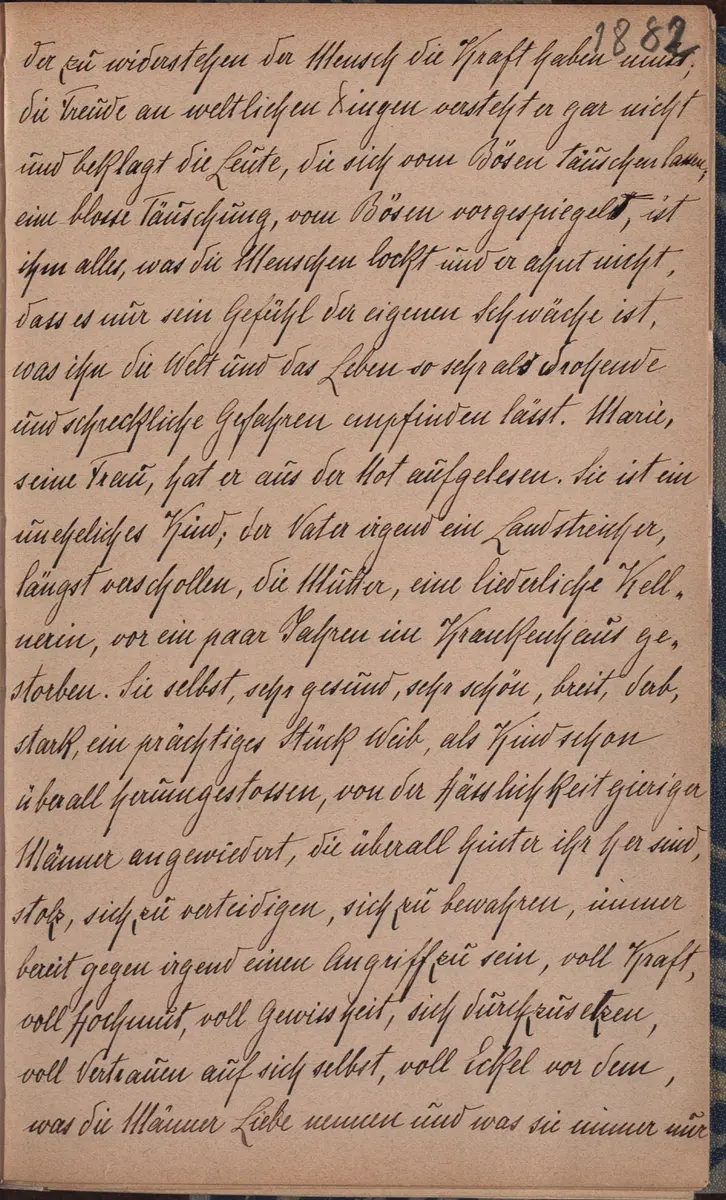 1882
der zu widerstehen der Mensch die Kraft haben muss;
die Freude an weltlichen Dingen versteht er gar nicht
und beklagt die Leute, die sich vom Bösen täuschen lassen;
eine blosse Täuschung, vom Bösen vorgespiegelt, ist
ihm alles, was die Menschen lockt und er ahnt nicht,
dass es nur sein Gefühl der eigenen Schwäche ist,
was ihn die Welt und das Leben so sehr als drohende
und schreckliche Gefahren empfinden lässt. Marie,
seine Frau, hat er aus der Not aufgelesen. Sie ist ein
uneheliches Kind; der Vater irgend ein Landstreicher,
längst verschollen, die Mutter, eine liederliche Kell„
nerin, vor ein paar Jahren im Krankenhaus ge„
storben. Sie selbst, sehr gesund, sehr schön, breit, derb,
stark, ein prächtiges Stück Weib, als Kind schon
überall herumgestossen, von der Hässlichkeit gieriger
Männer angewiedert, die überall hinter ihr her sind,
stolz, sich zu verteidigen, sich zu bewahren, immer
bereit gegen irgend einen Angriff zu sein, voll Kraft,
voll Hochmut, voll Gewissheit, sich durchzusetzen,
voll Vertrauen auf sich selbst, voll Eckel vor dem,
was die Männer Liebe nennen und was sie immer nur